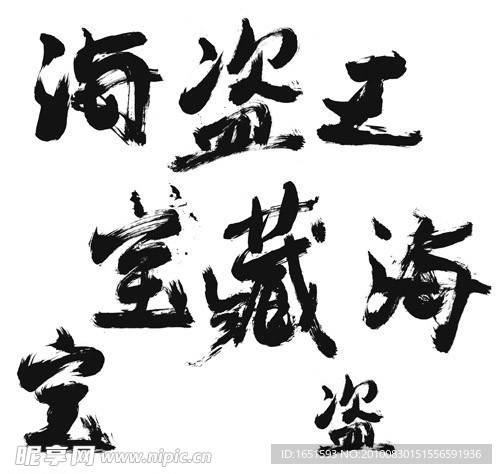 海盗王
宝藏海
宝盗
昵享网 www.nipic.cn
ID:1651593 NO:20100830151556591936